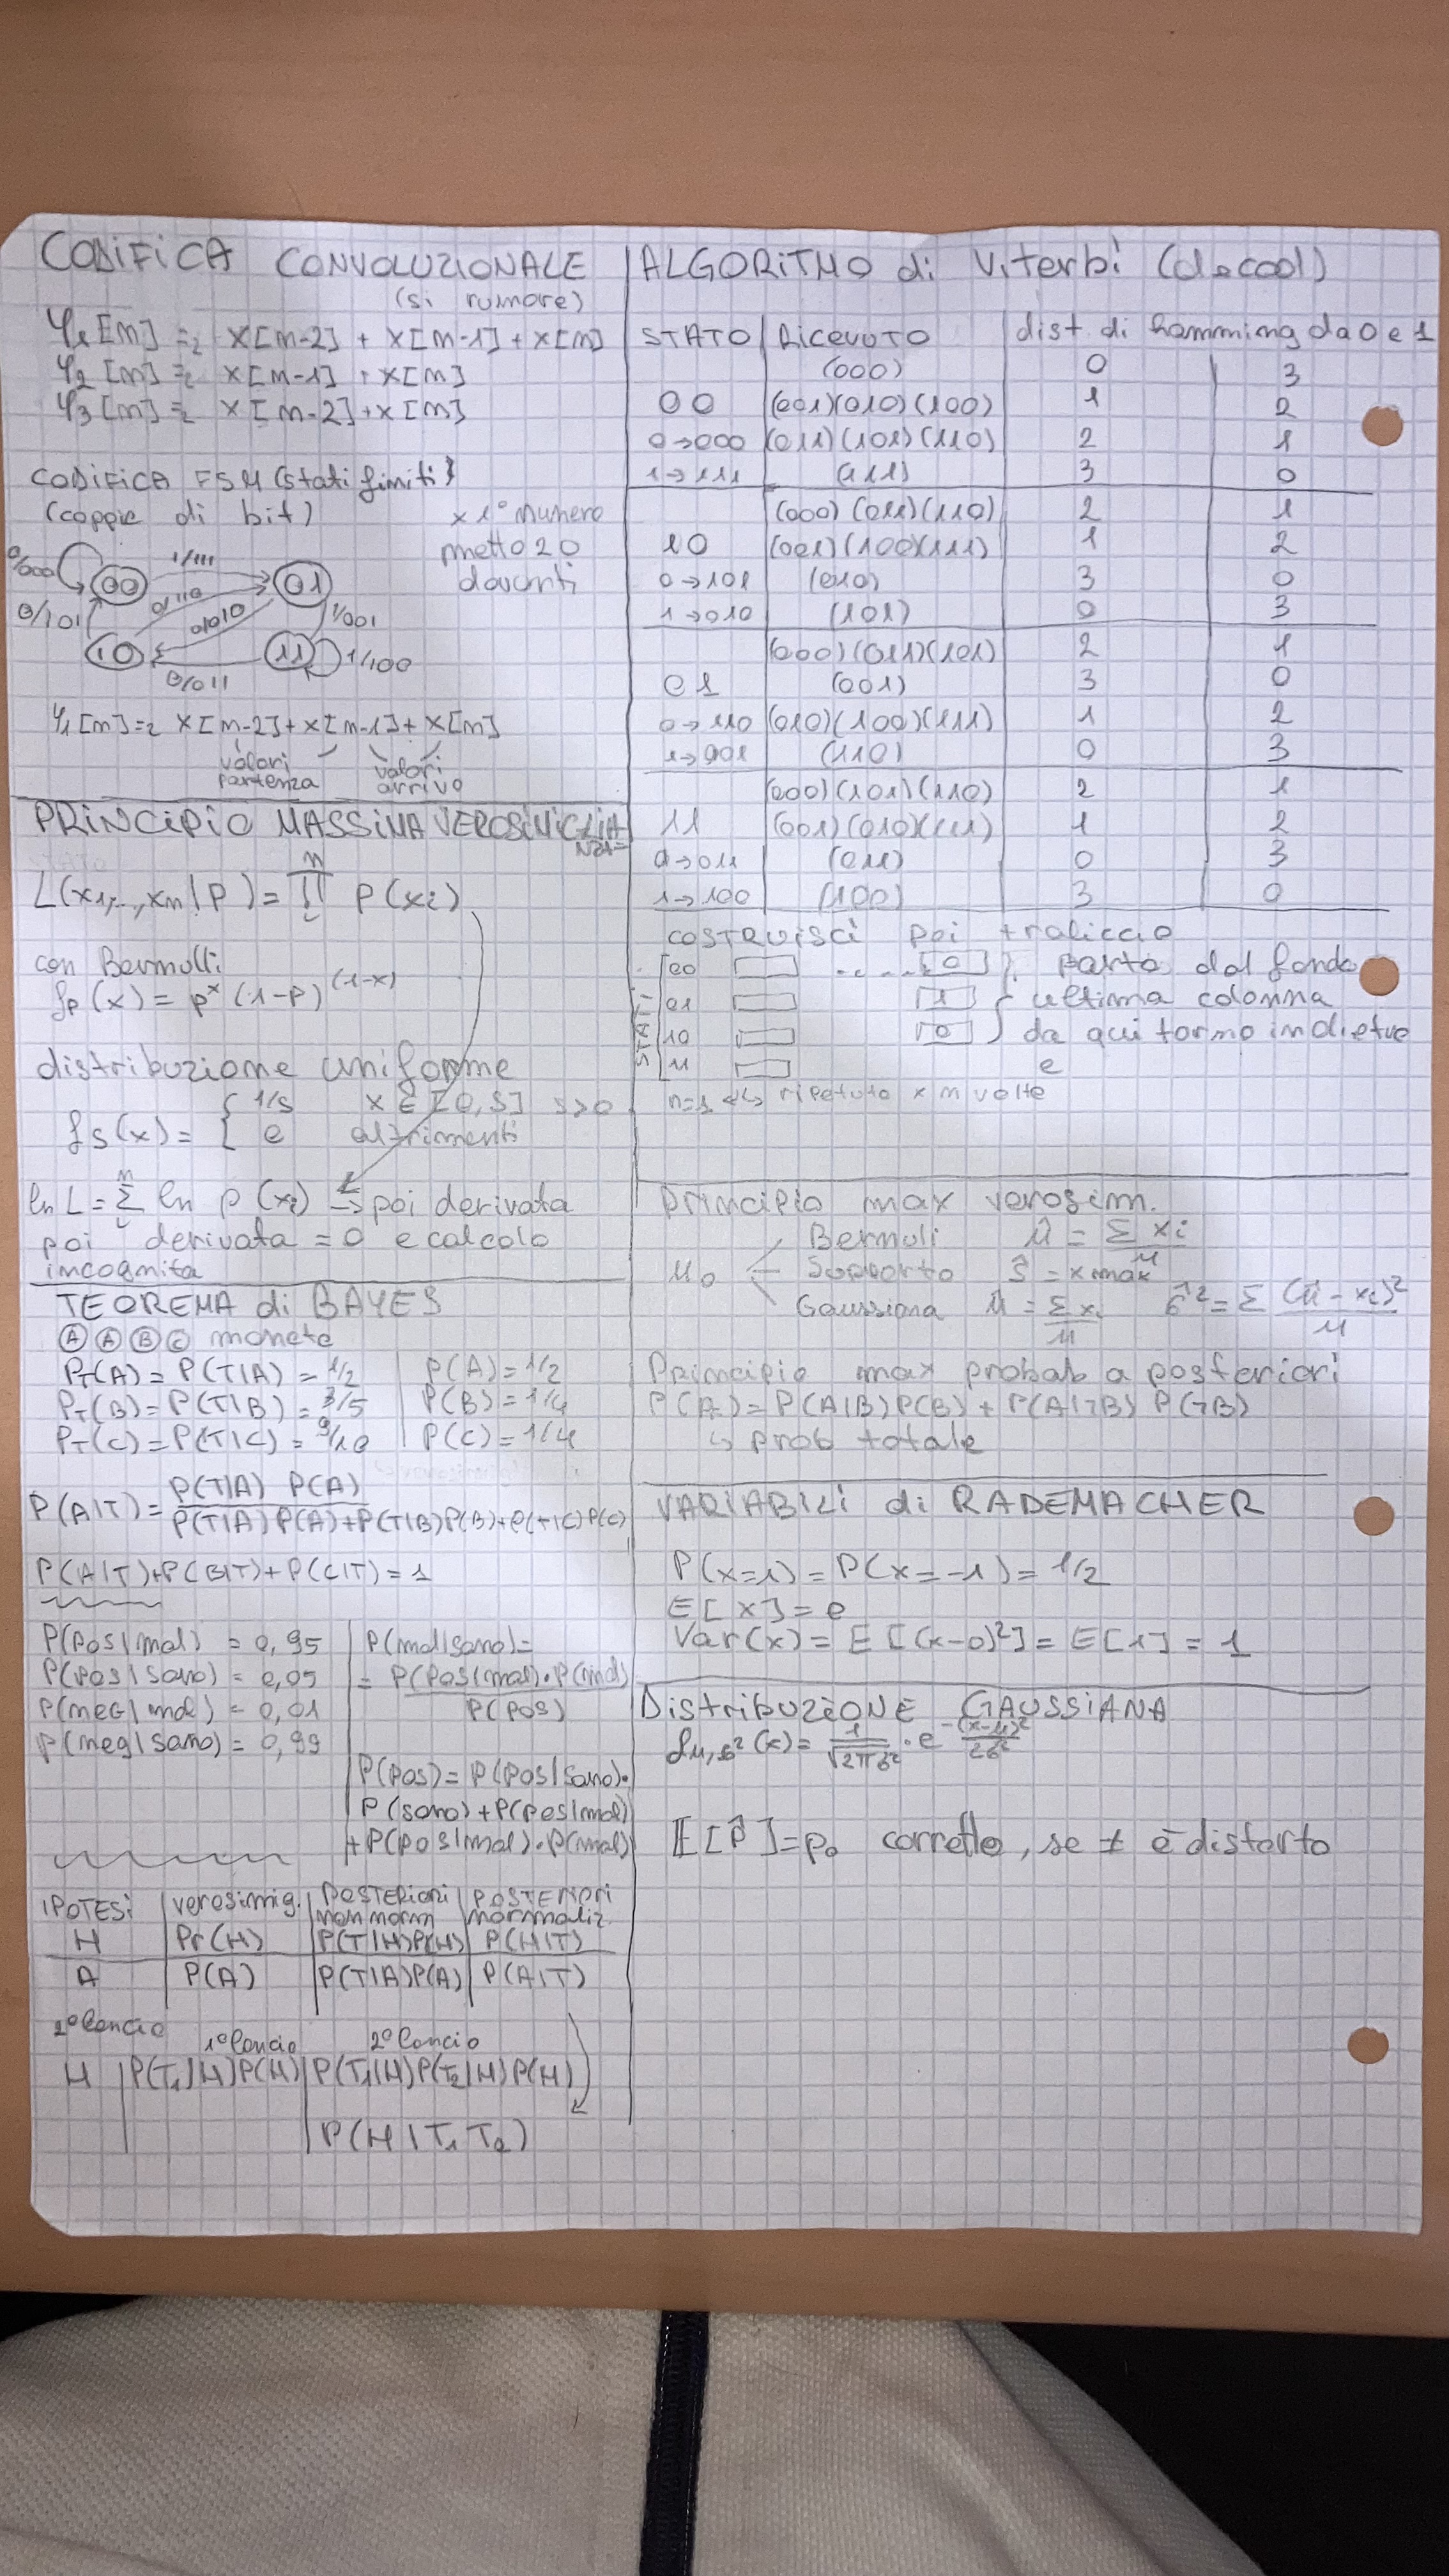 CODIFICA CONVOLUZIONALE
(si rumore)
φ1[m] =2 x[m-2] + x[m-1] + x[m]
φ2[m] =2 x[m-1] + x[m]
φ3[m] =2 x[m-2] + x[m]
CODIFICA FSM (stati finiti)
(coppie di bit)
x 1° numero
metto 2 0
davanti
0/000
00
1/111
01
0/101
0/110
0/010
1/001
10
11
1/100
0/011
φ1[m] =2 x[m-2] + x[m-1] + x[m]
valori partenza
valori arrivo
PRINCIPIO MASSIMA VEROSIMIGLIA
NZA=
L(x1,..,xm|p) = ∏ p(xi)
con Bernulli
fp(x) = p^x (1-p)^(1-x)
distribuzione uniforme
fs(x) = { 1/s x ∈ [0,s] s>0
0 altrimenti
ln L = Σ ln p(xi) → poi derivata
poi derivata = 0 e calcolo
incognita
TEOREMA di BAYES
A A B C monete
PT(A) = P(T|A) = 1/2 | P(A) = 1/2
PT(B) = P(T|B) = 3/5 | P(B) = 1/4
PT(C) = P(T|C) = 9/10 | P(C) = 1/4
P(A|T) = P(T|A) P(A) / P(T|A)P(A)+P(T|B)P(B)+P(T|C)P(C)
P(A|T)+P(B|T)+P(C|T) = 1
P(pos|mal) = 0,95
P(pos|sano) = 0,05
P(neg|mal) = 0,01
P(neg|sano) = 0,99
P(mal|sano) =
= P(pos|mal)·P(mal)
P(pos)
P(pos) = P(pos|sano)·
P(sano) + P(pos|mal)
+ P(pos|mal)·P(mal)
IPOTESI | verosimig. | POSTERIORI non norm | POSTERIORI normaliz.
H | Pr(H) | P(T|H)P(H) | P(H|T)
A | P(A) | P(T|A)P(A) | P(A|T)
2° lancio
1° lancio 2° lancio
H | P(T1|H)P(H) | P(T1|H)P(T2|H)P(H)
P(H|T1 T2)
ALGORITMO di Viterbi (decod)
STATO | Ricevuto | dist. di hamming da 0 e 1
(000) 0 3
00 (001)(010)(100) 1 2
0→000 (011)(101)(110) 2 1
1→111 (111) 3 0
(000)(011)(110) 2 1
10 (001)(100)(111) 1 2
0→101 (010) 3 0
1→010 (101) 0 3
(000)(011)(101) 2 1
01 (001) 3 0
0→110 (010)(100)(111) 1 2
1→001 (110) 0 3
(000)(101)(110) 2 1
11 (001)(010)(111) 1 2
0→011 (011) 0 3
1→100 (100) 3 0
costruisci poi traliccio
STATI
00 ...... 0 parto dal fondo
01 1 ultima colonna
10 0 da qui torno indietro
11 e
n=1 ↔ ripetuto x m volte
Principio max verosim.
Bernuli μ̂ = Σ xi / n
μ0 Supporto ŝ = x max
Gaussiana μ̂ = Σ xi / n σ̂² = Σ (μ̂ - xi)² / n
Principio max probab a posteriori
P(A) = P(A|B)P(B) + P(A|¬B) P(¬B)
↳ prob totale
VARIABILI di RADEMACHER
P(x=1) = P(x=-1) = 1/2
E[x] = 0
Var(x) = E[(x-0)²] = E[1] = 1
Distribuzione GAUSSIANA
fμ,σ²(x) = 1/√2πσ² · e^-(x-μ)²/2σ²
E[p̂] = p0 corretto, se ≠ è distorto